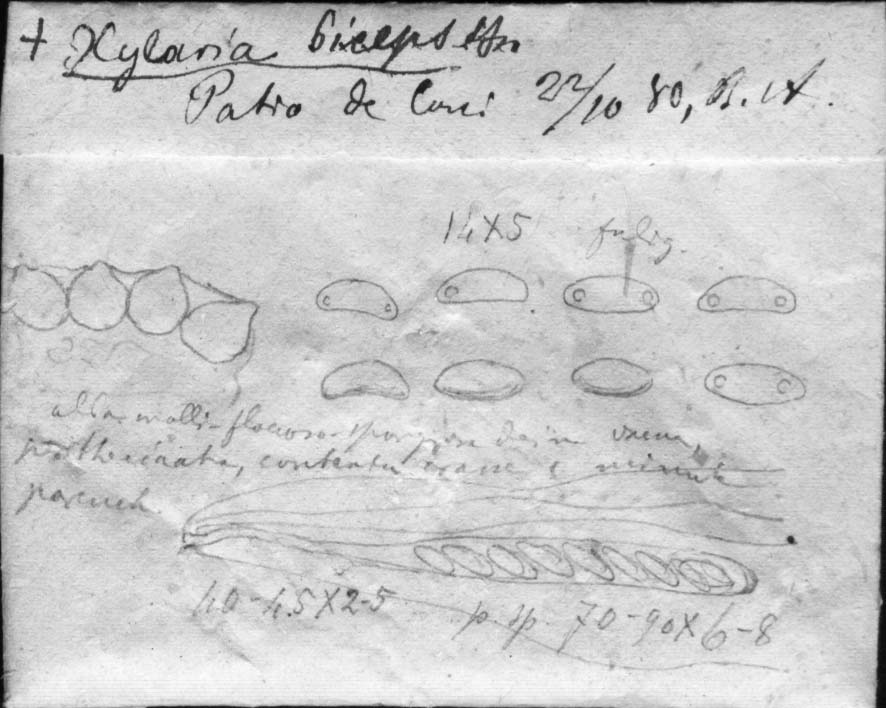 + Xylaria biceps
Patio de Cura 22/10 80, B. A.
14X5 fulig.
alba molli-floccoso-spongiosa dein vacua,
peritheciata, contextu crasse e minute
parench.
40-45X2-5 p. sp. 70-90X6-8